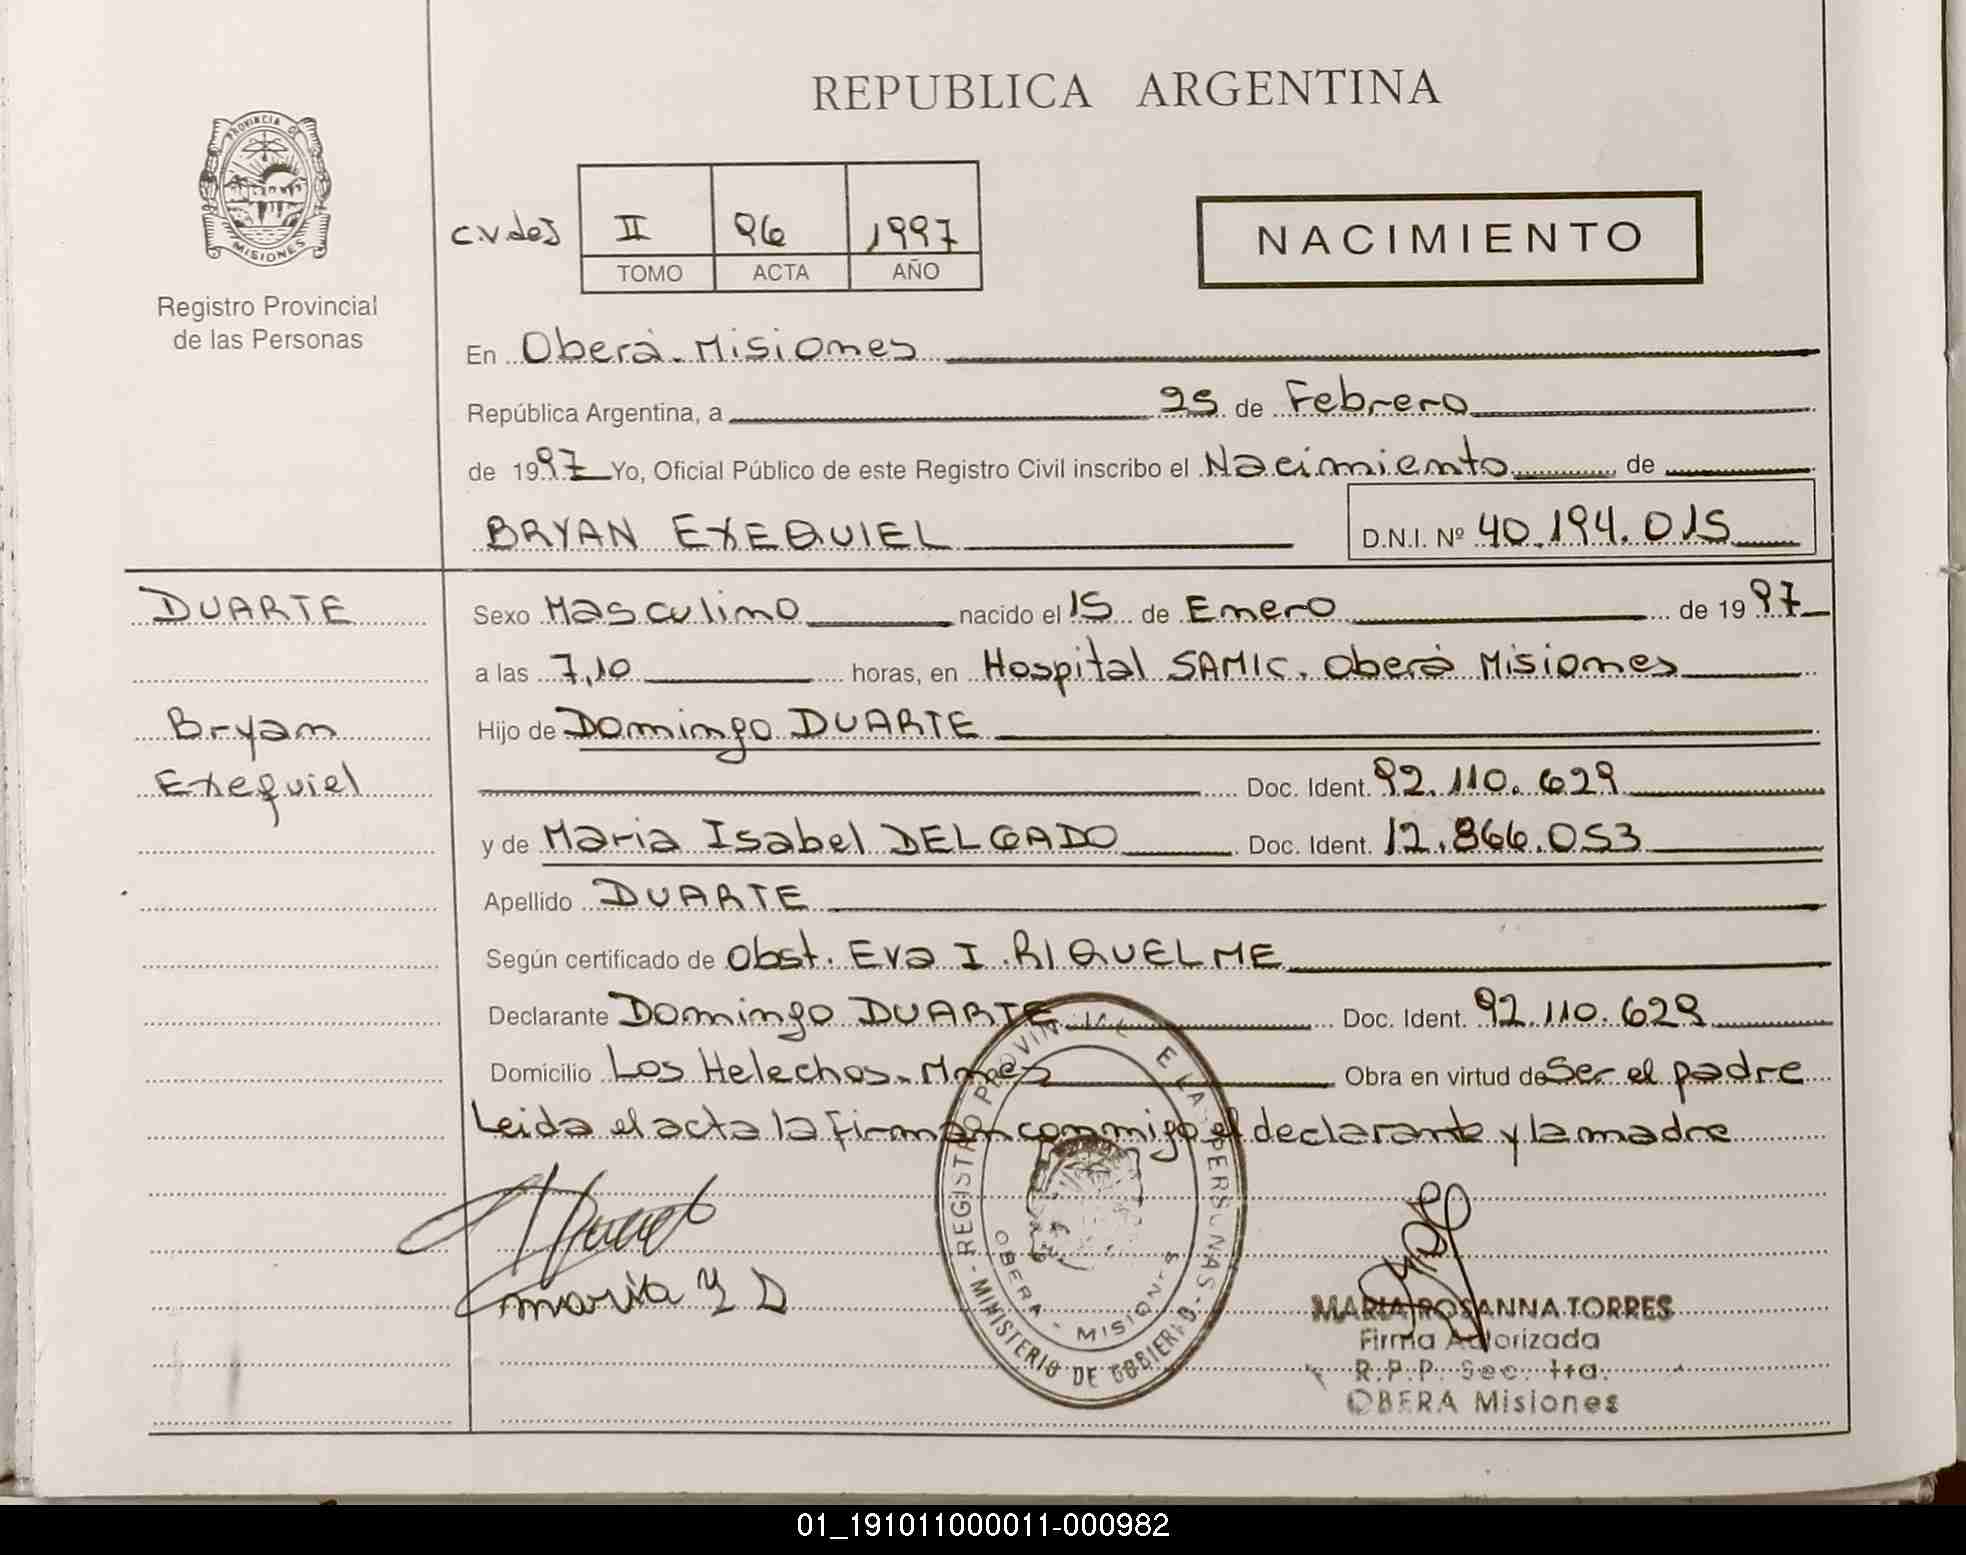 REPUBLICA ARGENTINA
PROVINCIA DE MISIONES
Registro Provincial
de las Personas
II 96 1997
TOMO ACTA AÑO
NACIMIENTO
En Oberá. Misiones
República Argentina, a 25 de Febrero
de 1997 Yo, Oficial Público de este Registro Civil inscribo el Nacimiento de
BRYAN EXEQUIEL D.N.I. Nº 40.194.015
DUARTE
Bryan
Exequiel
Sexo Masculino nacido el 15 de Enero de 1997
a las 7,10 horas, en Hospital SAMIC. Oberá Misiones
Hijo de Domingo DUARTE
Doc. Ident. 92.110.629
y de Maria Isabel DELGADO Doc. Ident. 12.866.053
Apellido DUARTE
Según certificado de Obst. Eva I. RIQUELME
Declarante Domingo DUARTE Doc. Ident. 92.110.629
Domicilio Los Helechos. Mnes Obra en virtud de Ser el padre
Leida el acta la firman conmigo el declarante y la madre
maria Y D
REGISTRO PROVINCIAL DE LAS PERSONAS - MINISTERIO DE GOBIERNO -
OBERA - MISIONES
MARIA ROSANNA TORRES
Firma Autorizada
R.P.P. Sec. 1ra.
OBERA Misiones
01_191011000011-000982